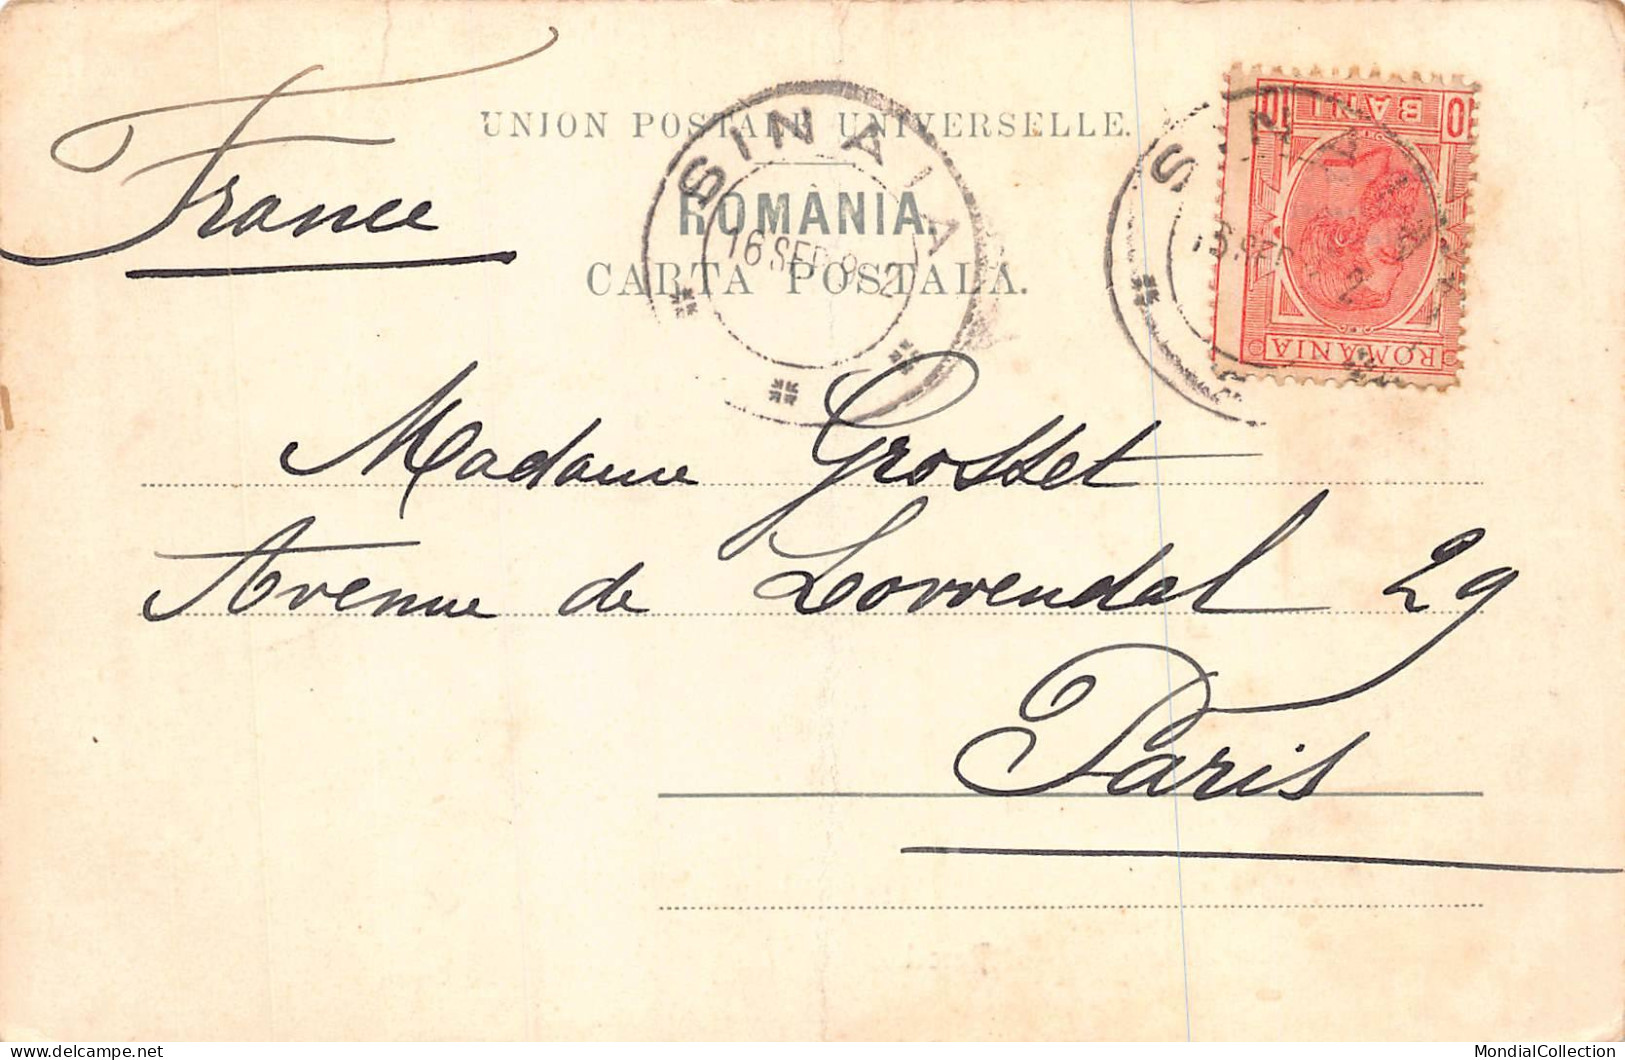 France
UNION POSTALE UNIVERSELLE.
ROMÂNIA.
CARTA POSTALA.
SINAIA
16 SEP
10 BANI 10
ROMANIA
Madame Grosset
Avenue de Lowendal 29
Paris
MondialCollection